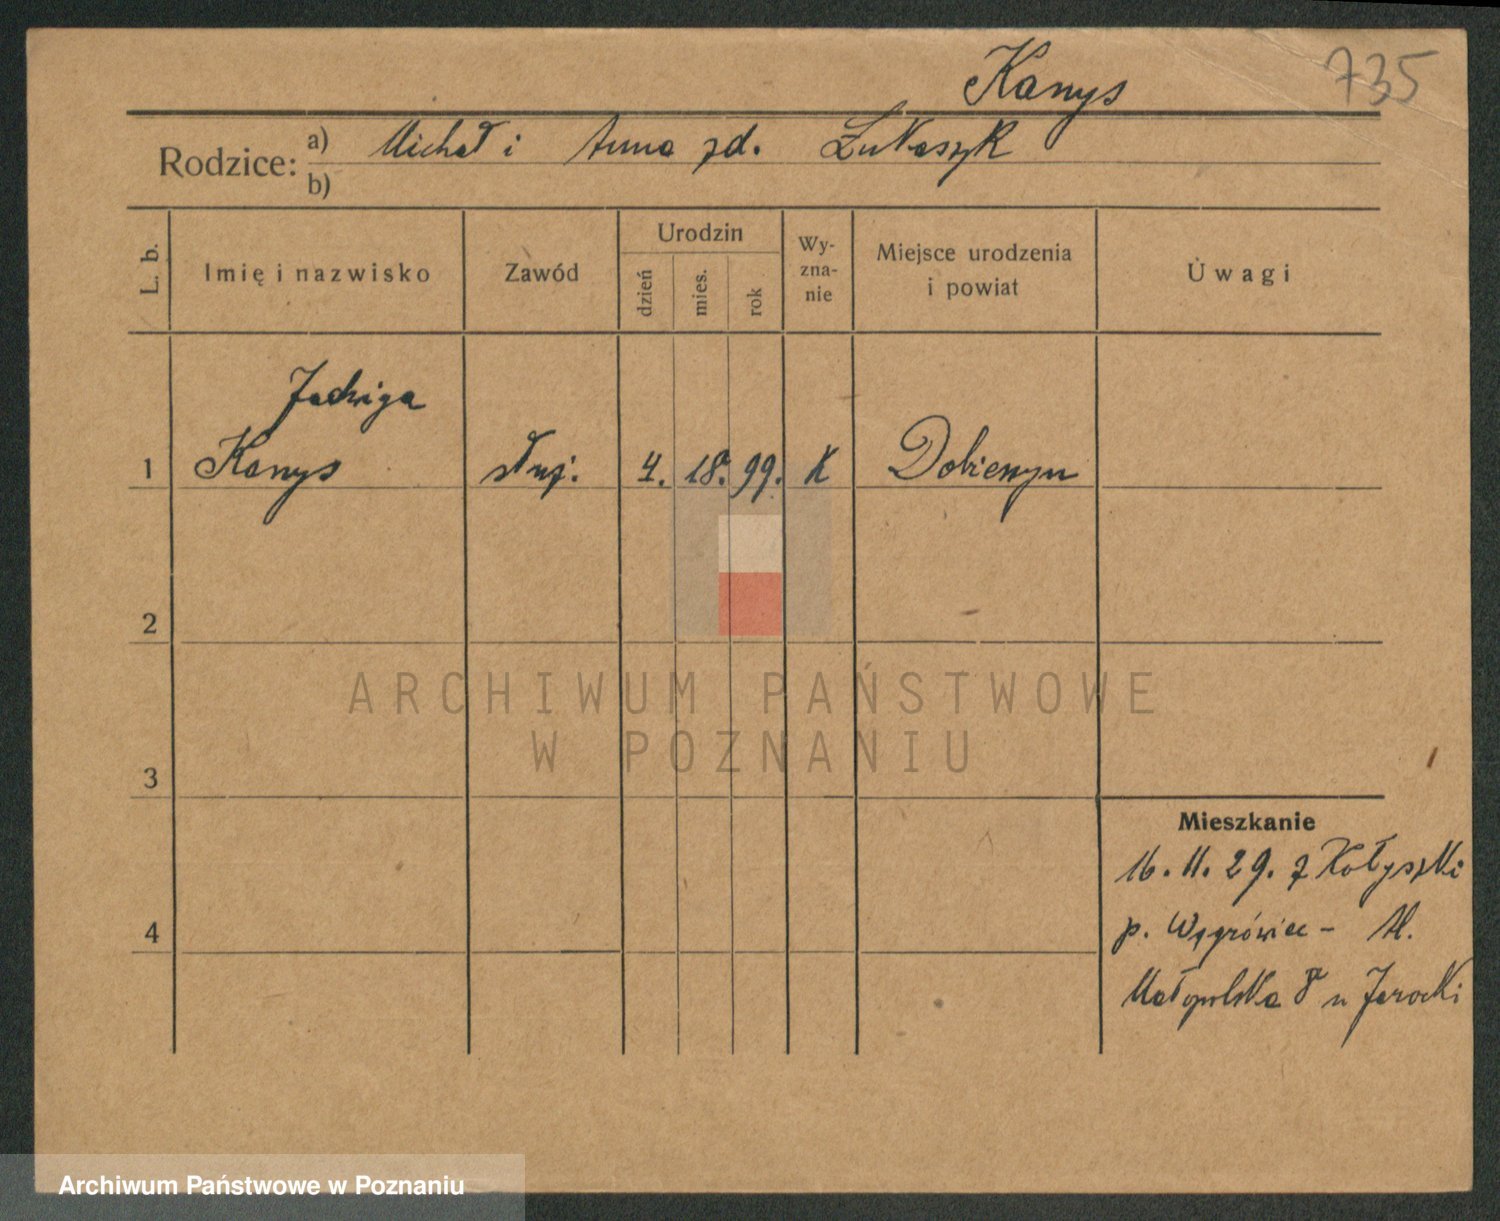 Kanys 735
Rodzice: a) Michał i Anna zd. Łukaszyk
b)
L. b. Imię i nazwisko Zawód Urodzin dzień mies. rok Wy-zna-nie Miejsce urodzenia i powiat Uwagi
Jadwiga
1 Kanys służ. 4. 18. 99. K
2
3
4
Mieszkanie
16. 11. 29. z Kołyszki
p. Wągrówiec - Ul.
Małopolska 8 u Jarocki
ARCHIWUM PAŃSTWOWE
W POZNANIU
Archiwum Państwowe w Poznaniu